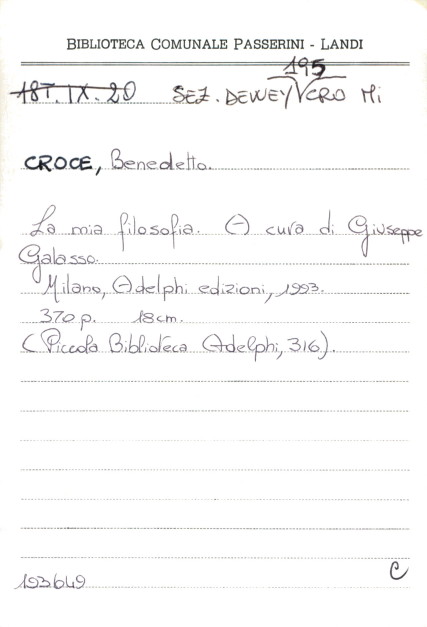 BIBLIOTECA COMUNALE PASSERINI - LANDI
18T.IX.20 SEZ. DEWEY 195 CRO Mi
CROCE, Benedetto.
La mia filosofia. A cura di Giuseppe
Galasso.
Milano, Adelphi edizioni, 1993.
370 p. 18cm.
(Piccola Biblioteca Adelphi, 316).
193649
C